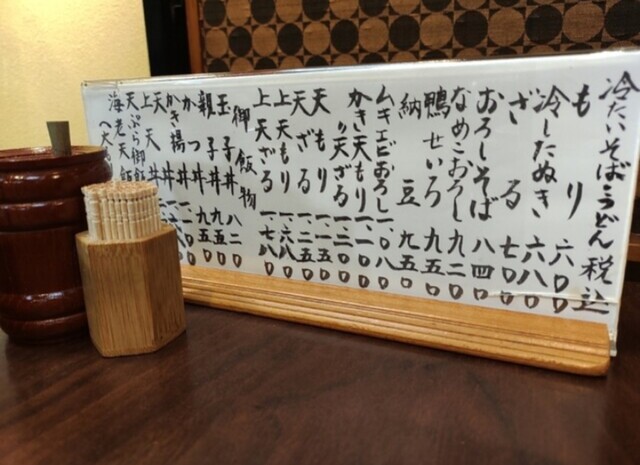 冷たいそばうどん税込
もり 六〇〇
冷したぬき 六八〇
ざる 七〇〇
おろしそば 八四〇
なめこおろし 九二〇
鴨せいろ 九五〇
納豆 九五〇
ムキエビおろし 一、〇八〇
かき天もり
かき天ざる
天もり
天ざる
上天もり 一、六八〇
上天ざる 一、七八〇
御飯物
玉子丼 八二〇
親子丼 九五〇
かつ丼 九五〇
かき揚丼
天丼
上天丼
天ぷら御飯
海老天飯